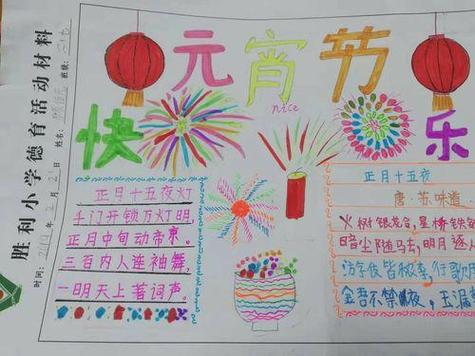 胜利小学德育活动材料
时间: 2019年2月21日 姓名: 班级:
元宵节
快乐
nice
正月十五夜灯
千门开锁万灯明,
正月中旬动帝京。
三百内人连袖舞,
一明天上著词声。
正月十五夜
唐·苏味道
火树银花合,星桥铁
暗尘随马去,明月逐人
行歌
金吾不禁夜,玉漏